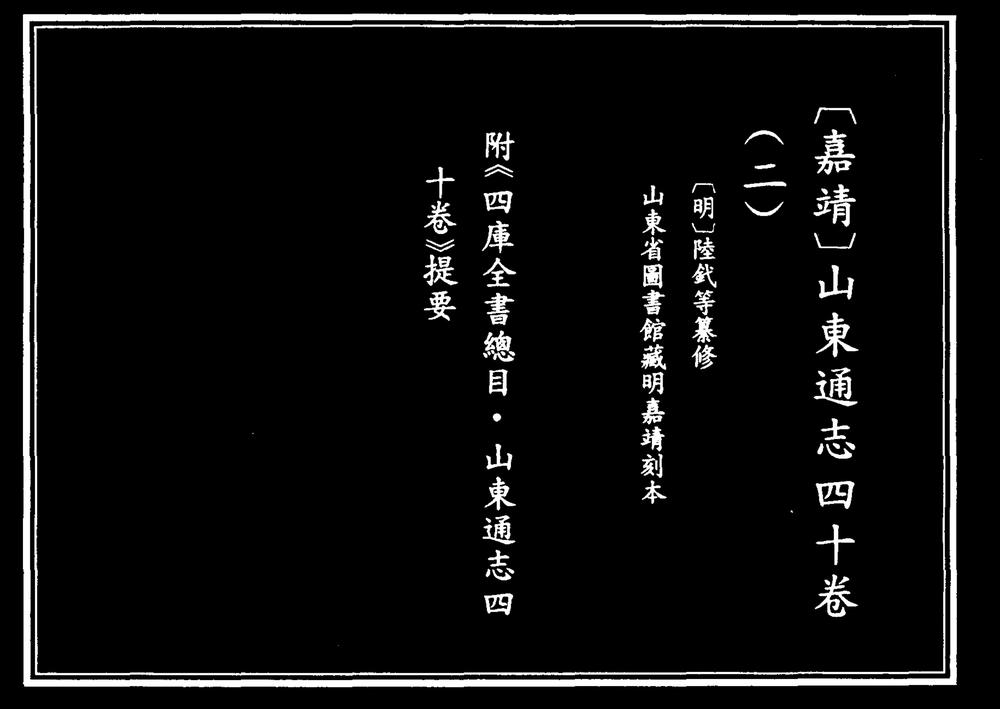 〔嘉靖〕山東通志四十卷
（二）
〔明〕陸釴等纂修
山東省圖書館藏明嘉靖刻本
附《四庫全書總目·山東通志四
十卷》提要